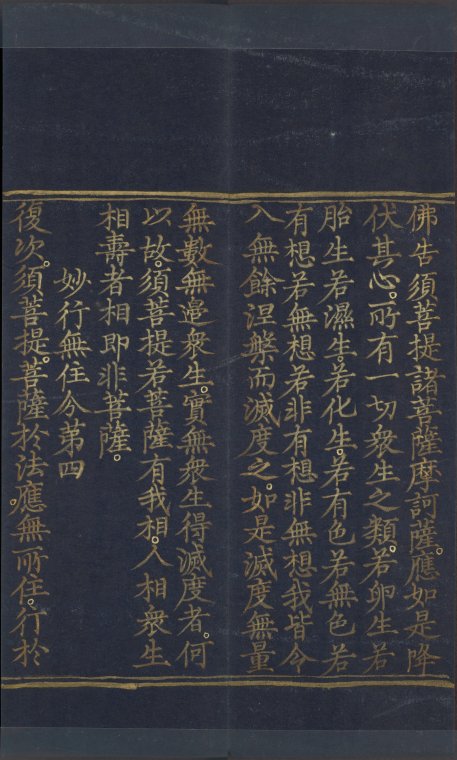 佛告須菩提諸菩薩摩訶薩。應如是降
伏其心。所有一切衆生之類。若卵生若
胎生若濕生。若化生。若有色若無色若
有想若無想若非有想非無想我皆令
入無餘涅槃而滅度之。如是滅度無量
無數無邊衆生。實無衆生得滅度者。何
以故。須菩提若菩薩有我相。人相衆生
相壽者相即非菩薩。
妙行無住分第四
復次。須菩提。菩薩於法。應無所住。行於